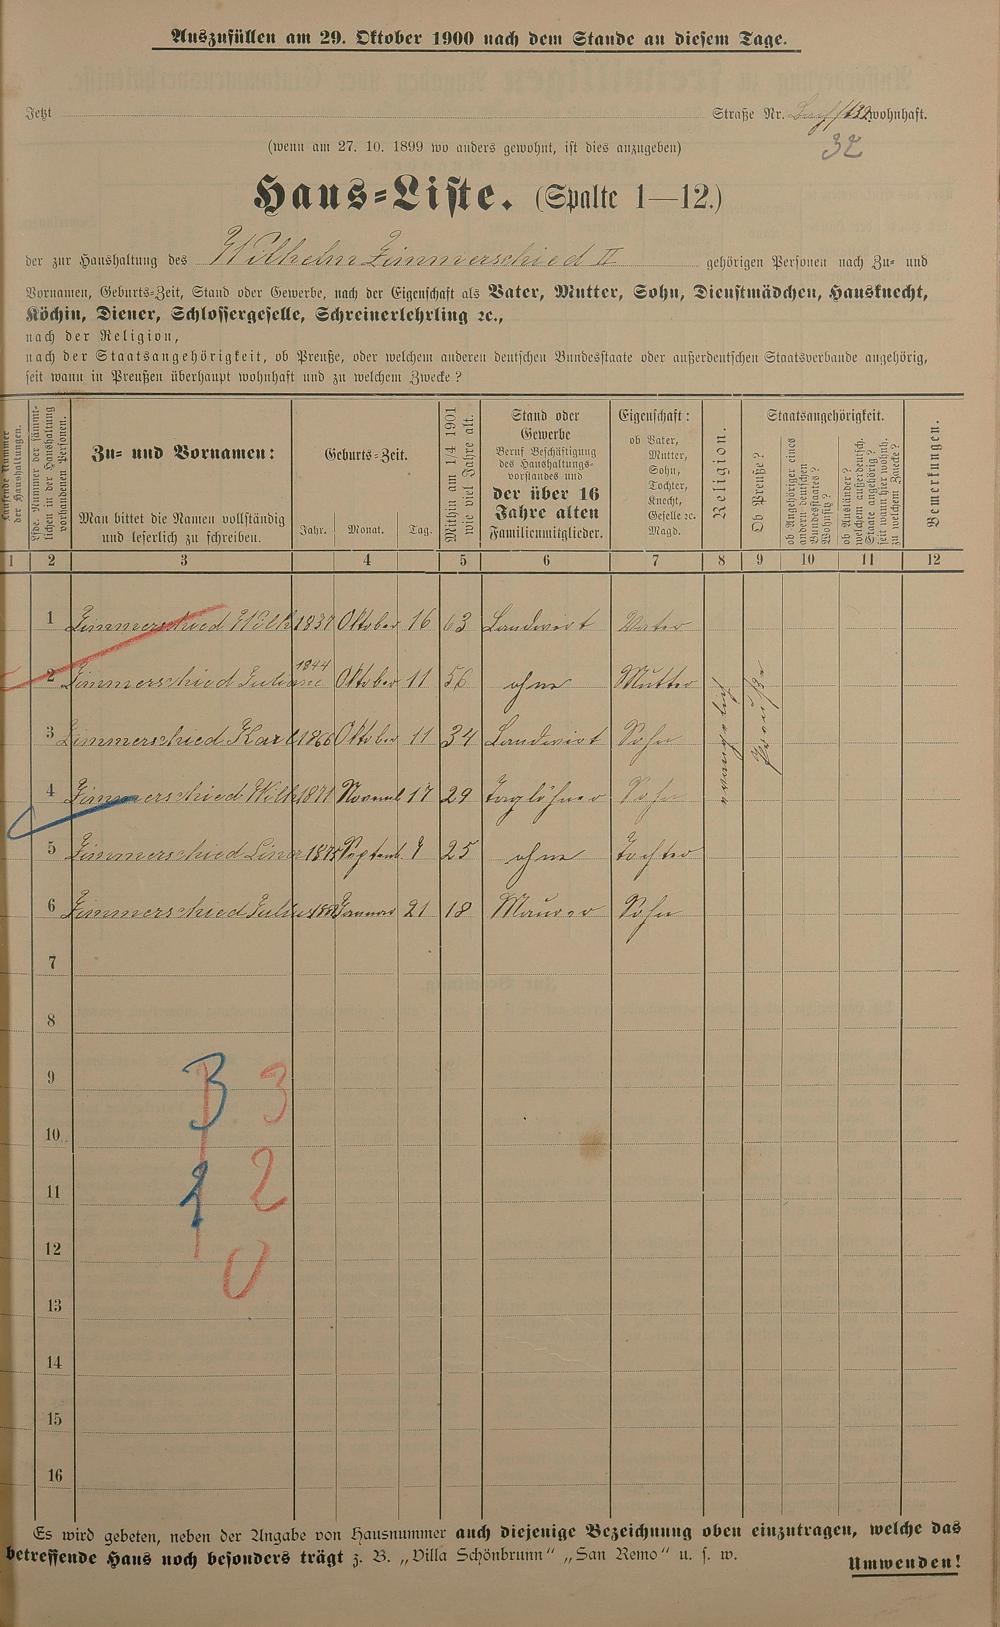 Auszufüllen am 29. Oktober 1900 nach dem Stande an diesem Tage.
Jetzt Straße Nr. 132 wohnhaft.
32
(wenn am 27. 10. 1899 wo anders gewohnt, ist dies anzugeben)
Haus-Liste. (Spalte 1—12.)
der zur Haushaltung des Wilhelm Zimmerschied II gehörigen Personen nach Zu- und
Vornamen, Geburts-Zeit, Stand oder Gewerbe, nach der Eigenschaft als Vater, Mutter, Sohn, Dienstmädchen, Hausknecht,
Köchin, Diener, Schlossergeselle, Schreinerlehrling ꝛc.,
nach der Religion,
nach der Staatsangehörigkeit, ob Preuße, oder welchem anderen deutschen Bundesstaate oder außerdeutschen Staatsverbande angehörig,
seit wann in Preußen überhaupt wohnhaft und zu welchem Zwecke?
Laufende Nummer der Haushaltungen.
Lfde. Nummer der sämmtlichen in der Haushaltung vorhandenen Personen.
Zu- und Vornamen:
Man bittet die Namen vollständig
und leserlich zu schreiben.
Geburts-Zeit.
Jahr. Monat. Tag.
Mithin am 1/4 1901
wie viel Jahre alt.
Stand oder
Gewerbe
Beruf Beschäftigung
des Haushaltungs-
vorstandes und
der über 16
Jahre alten
Familienmitglieder.
Eigenschaft:
ob Vater,
Mutter,
Sohn,
Tochter,
Knecht,
Geselle ꝛc.
Magd.
Religion.
Staatsangehörigkeit.
Ob Preuße?
ob Angehöriger eines
andern deutschen
Bundesstaates?
Wohnsitz?
ob Ausländer?
welchem außerdeutsch.
Staate angehörig?
seit wann hier wohnh.
zu welchem Zwecke?
Bemerkungen.
1 2 3 4 5 6 7 8 9 10 11 12
1 Zimmerschied Wilh 1837 Oktober 16 63 Landwirt Vater
2 Zimmerschied Juliane 1844 Oktober 11 56 ohne Mutter
3 Zimmerschied Karl 1866 Oktober 11 34 Landwirt Sohn
4 Zimmerschied Wilh 1871 Novemb 17 29 Taglöhner Sohn
5 Zimmerschied Lina 1875 Septemb. 9 25 ohne Tochter
6 Zimmerschied Julius Januar 21 18 Maurer Sohn
evangelisch
Preuße
7
8
9
10
11
12
13
14
15
16
B 3
1 2
0
Es wird gebeten, neben der Angabe von Hausnummer auch diejenige Bezeichnung oben einzutragen, welche das
betreffende Haus noch besonders trägt z. B. „Villa Schönbrunn“ „San Remo“ u. s. w.
Umwenden!